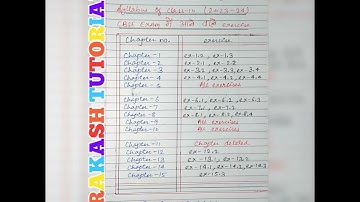 Syllabus of Class-10 (2023-24)
CBSE Exam में आने वाले exercise
Chapter no. exercise
Chapter-1 ex-1.2, ex-1.3
Chapter-2 ex-2.1, ex-2.2
Chapter-3 ex-3.2, ex-3.3, ex-3.4
Chapter-4 ex-4.1, ex-4.2, ex-4.4
Chapter-5 All exercises
Chapter-6 ex-6.1, ex-6.2, ex-6.3
Chapter-7 ex-7.1, ex-7.2
Chapter-8 ex-8.1, ex-8.2, ex-8.4
Chapter-9 All exercises
Chapter-10 All exercises
Chapter-11 Chapter deleted
Chapter-12 ex-12.2
Chapter-13 ex-13.1, ex-13.2
Chapter-14 ex-14.1, ex-14.2, ex-14.3
Chapter-15 ex-15.1
RAKASH TUTORIA
RAKASH TUTORIA